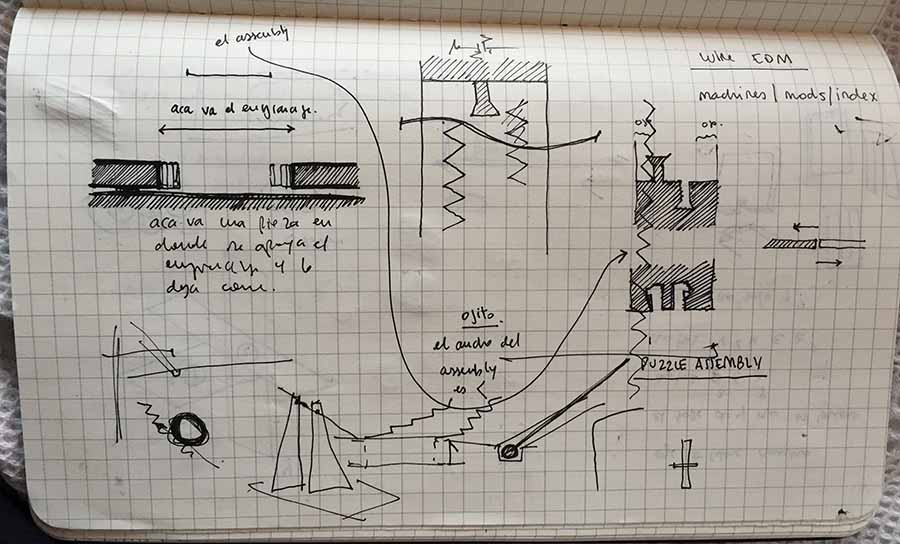 el assembly
aca va el engranaje.
aca va una pieza en
donde se apoya el
engranaje y lo
deja correr.
ojito.
el ancho del
assembly
es
WIRE EDM
machines / mods / index
PUZZLE ASSEMBLY